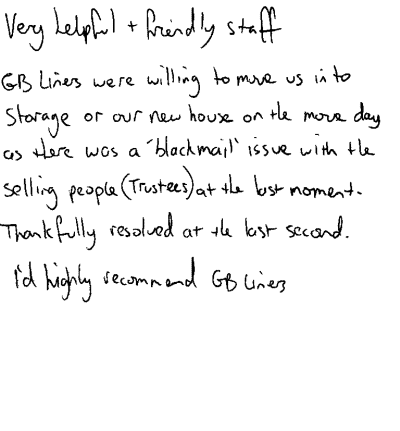 Very helpful + friendly staff
GB Liners were willing to move us in to
Storage or our new house on the move day
as there was a 'blackmail' issue with the
selling people (Trustees) at the last moment.
Thankfully resolved at the last second.
I'd highly recommend GB Liners